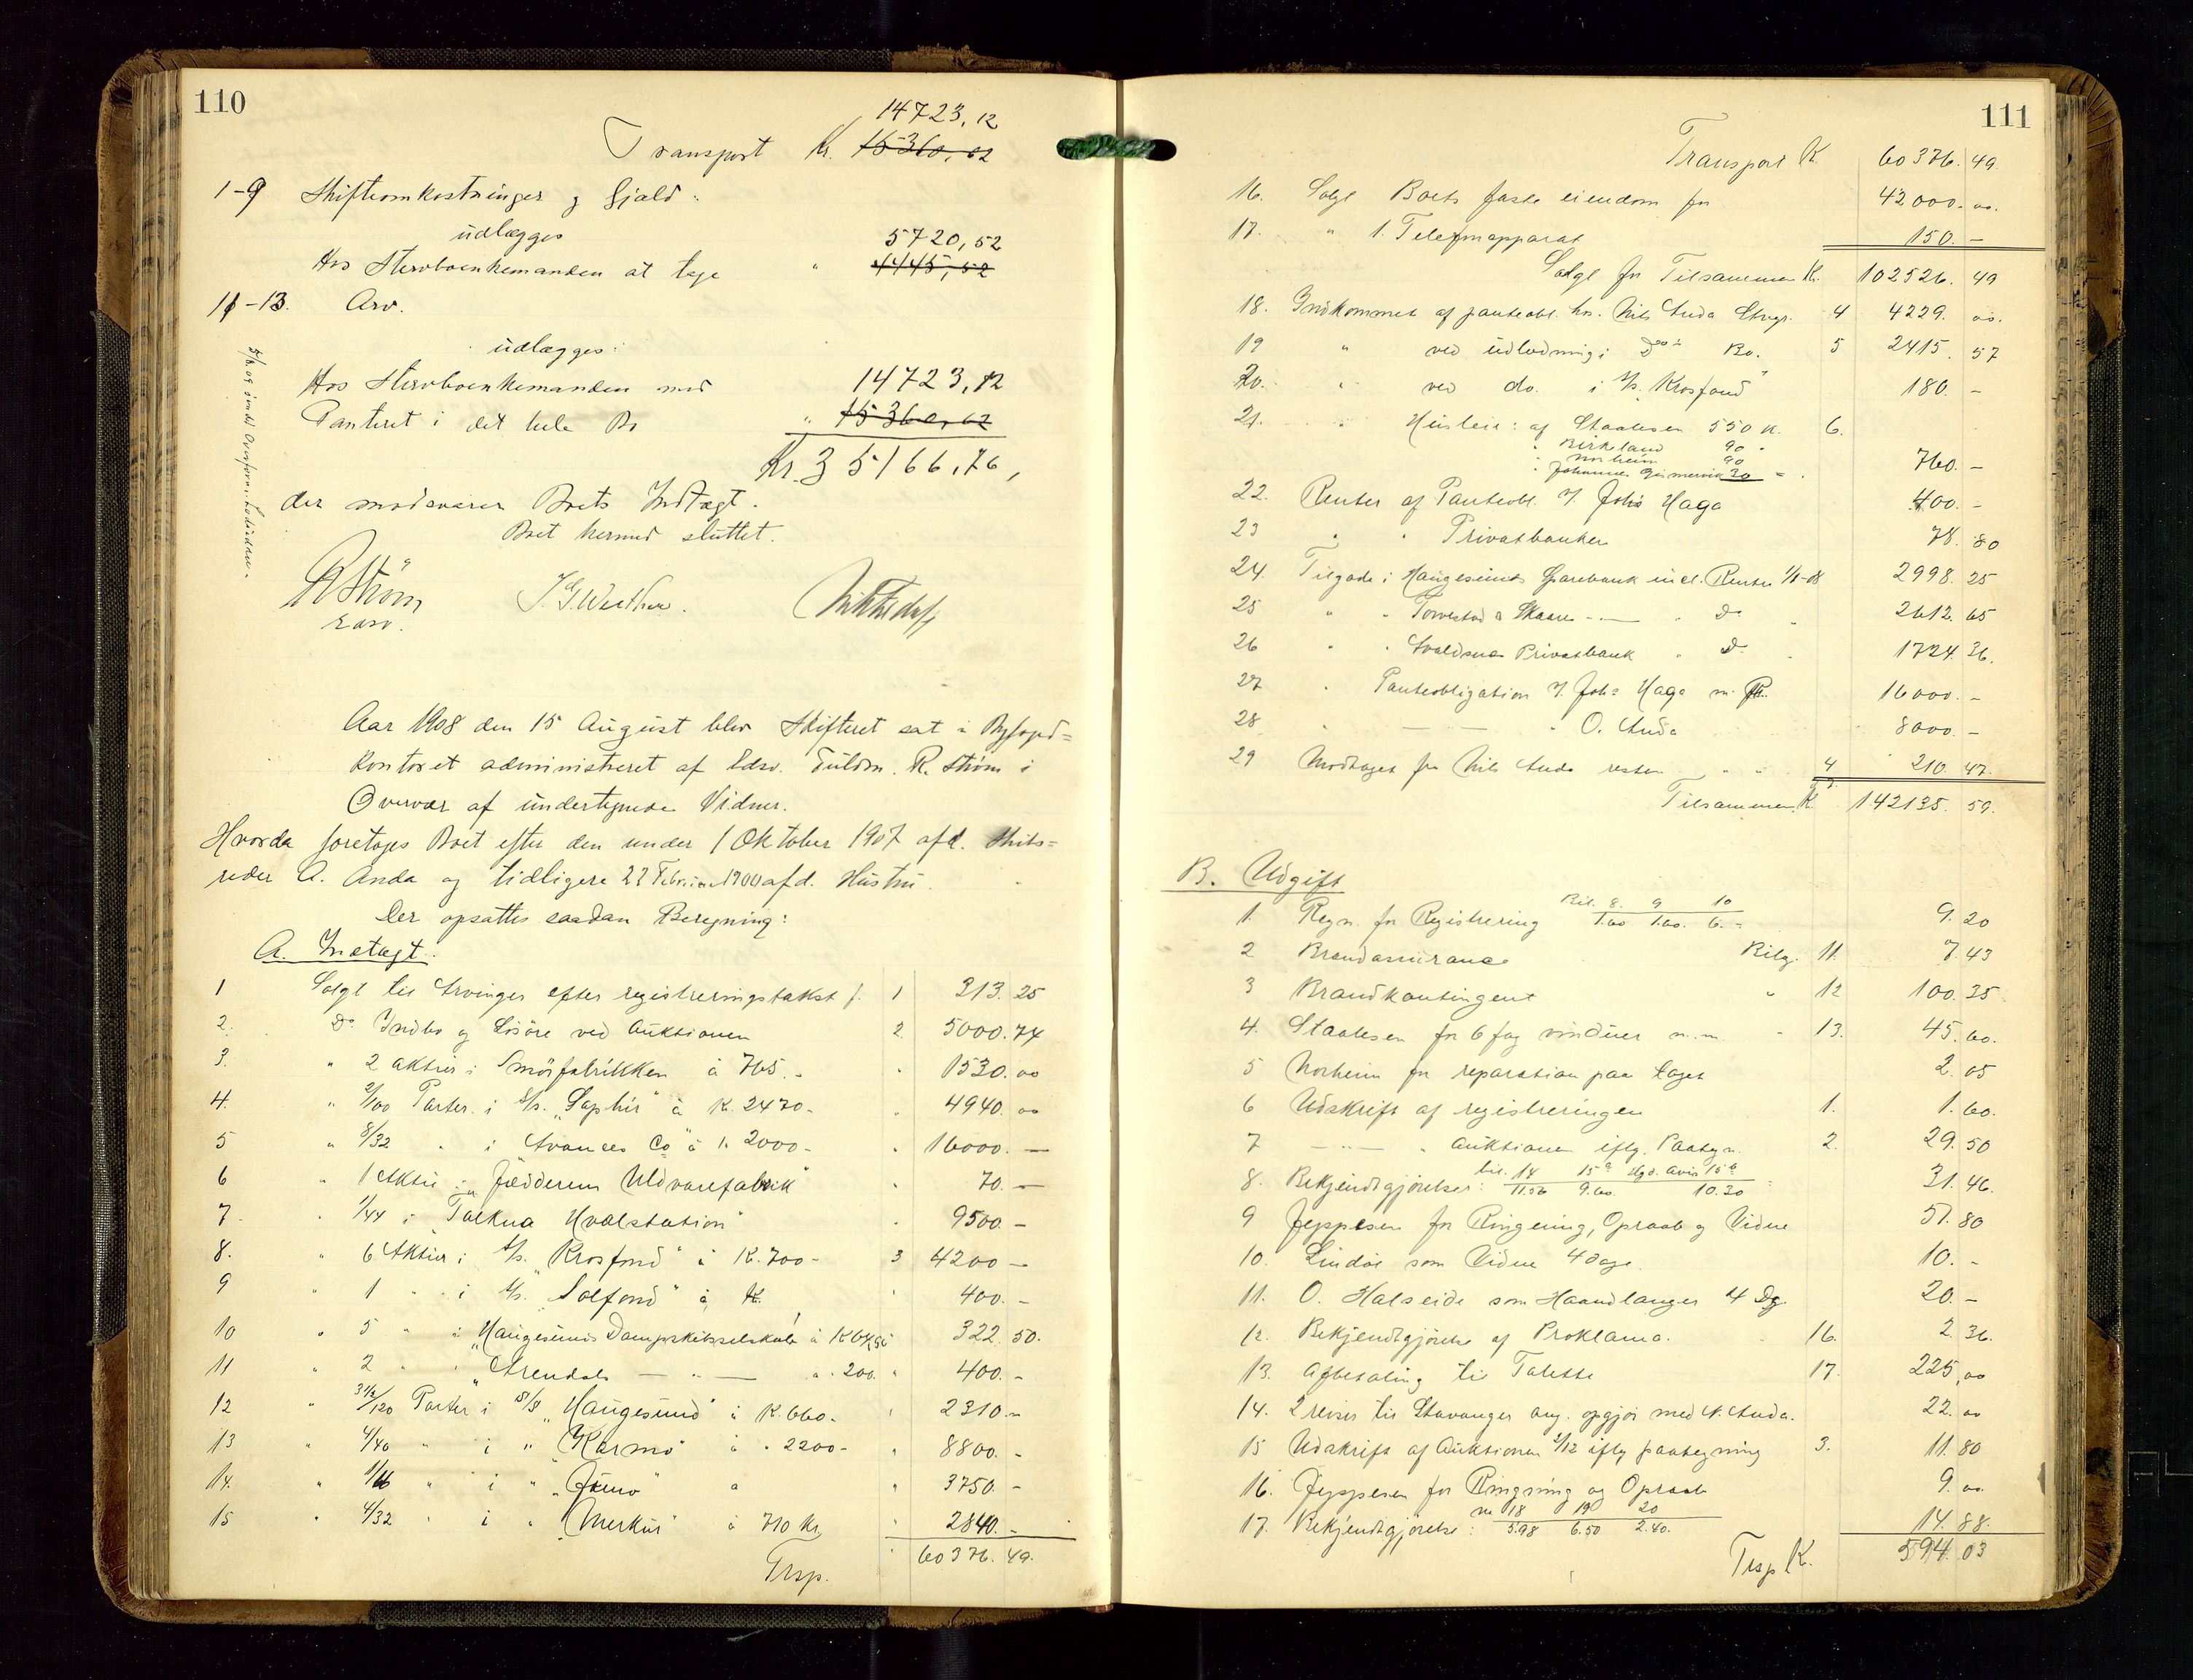 110
14723,12
Transport Kr. 15360,62
1-9 Skifteomkostninger og Gjæld:
udlægges 5720,52
Hos Stervboenkemanden at tage " 4445,52
11-13. Arv.
udlægges:
Hos Stervboenkemanden mod 14723,12
Panteret i det hele Bo " 15360,62
Kr. 35166,76,
der modsvarer Boets Indtægt.
Boet hermed sluttet.
RStrøm
Edsv.
Aar 1908 den 15 August blev Skifteret sat i Byfoged=
kontoret administreret af Edsv. Fuldm. R. Strøm i
Overvær af undertegnede Vidner.
Hvorda foretages Boet efter den under 1 Oktober 1907 afd. Skibs=
reder A. Anda og tidligere 22 Februar 1900 afd. Hustru.
Der opsattes saadan Beregning:
A. Indtægt.
1 Solgt til Arvinger efter registreringstakst f. 1 313. 25
2. Do Indbo og Løsøre ved Auktionen 2. 5000. 74
3. " 2 aktier i Smörfabrikken à 765.- " 1530. 00
4. " 2/100 Parter i S/s. "Saphir" à K. 2470- " 4940. 00
5 " 8/32 " i Avances Co" à K. 2000- " 16000. —
6 " 1 Aktie i "Jædderens Uldvarefabrik" " 70. —
7. " 1/44 i "Talkna Hvalstation" " 9500 —
8. " 6 Aktier i S/s. "Krosfond" à K. 700- 3 4200 —
9 " 1 " i S/s. "Solfond" à K. " 400. -
10 " 5 " i "Haugesunds Dampskibsselskab" à K 64,50 322. 50.
11 " 2 " "Arendals — " — " 200. " 400. -
12 " 3 1/2/120 Parter i S/S "Haugesund" à K. 660. " 2310. -
13 " 4/40 " i " "Karmö" à " 2200- " 8800. -
14. " 1/16 " i " "Juno" a " 3750. -
15 " 4/32 " i " "Merkur" à 710 Kr. " 2840. -
Trsp. 60376. 49.
111
Transport K. 60376. 49.
16. Solgt Boets faste eiendom for 42000. 00.
17. " 1. Telefonapparat 150. -
Solgt for Tilsammen K. 102526. 49
18. Indkommet af panteobl. hos. Nils Anda Stvgr. 4 4229. 00.
19 " ved udlodning i Dos Bo. 5 2415. 57
20. " ved do. i S/s. Krosfond" 180. -
21. " Husleie: af Staalesen 550 K. 6.
" Birkeland 90 "
" Norheim 90
" Johannes 30 = 760. -
22. Renter af Panteobl. f. Johs Haga 400. -
23 " " Privatbanken 78. 80
24. Tilgode i Haugesunds Sparebank incl. Renter 1/8-08 2998. 25
25 " " Torvestad & Skaare - — " Do " 2612. 65
26 " " Avaldsnes Privatbank " Do " 1724. 36.
27 " Panteobligation f. Johs Haga m. R. 16000. -
28 " — — " O. Anda 8000. -
29 Modtaget fra Nils Anda resten " " 4 210. 47.
Tilsammen K. 142135. 59.
B. Udgift
1. Regn. for Registrering Bil. 8. 9 10
1.60 1.60. 6.- 9. 20
2 Brandassurance Bilg. 11. 7. 43
3 Brandkontingent " 12 100. 35
4. Staalesen for 6 fag vinduer m.m. " 13. 45. 60.
5 Norheim for reparation paa taget 2. 05
6 Udskrift af registreringen 1. 1. 60.
7 — " — " Auktionen iflg. Paategn. 2. 29. 50
8. Bekjendtgjørelser: bil. 14 15a Hgs. Avis 15b
11.56 9.60 10.30 31. 46.
9 Jeppesen for Ringning, Opraab og Vidne 51. 80
10. Lindøe som Vidne 4 dage. 10. -
11. O. Halseide som Haandlanger 4 Dg. 20. -
12. Bekjendtgjørelse af Proklama. 16. 2. 36.
13. Afbetaling til Tolette 17. 225, 00
14. 2 reiser til Stavanger ang. opgjør med N. Anda. 22. 00
15 Udskrift af Auktionen 2/12 iflg paategning 3. 11. 80
16. Jeppesen for Ringning og Opraab 9. 00
17. Bekjendtgjørelse: no 18 19 20
5.98 6.50 2.40. 14. 88.
Trsp K. 594. 03